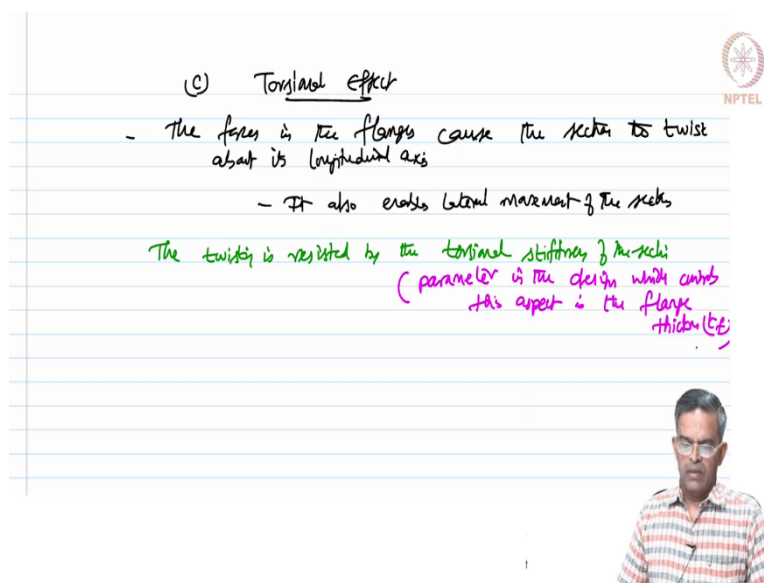 (c) Torsional Effect
NPTEL
- The forces in the flanges cause the section to twist
about its longitudinal axis
- It also enables lateral movement of the section
The twisting is resisted by the torsional stiffness of the section
(parameter in the design which controls
this aspect is the flange
thickness (tf)